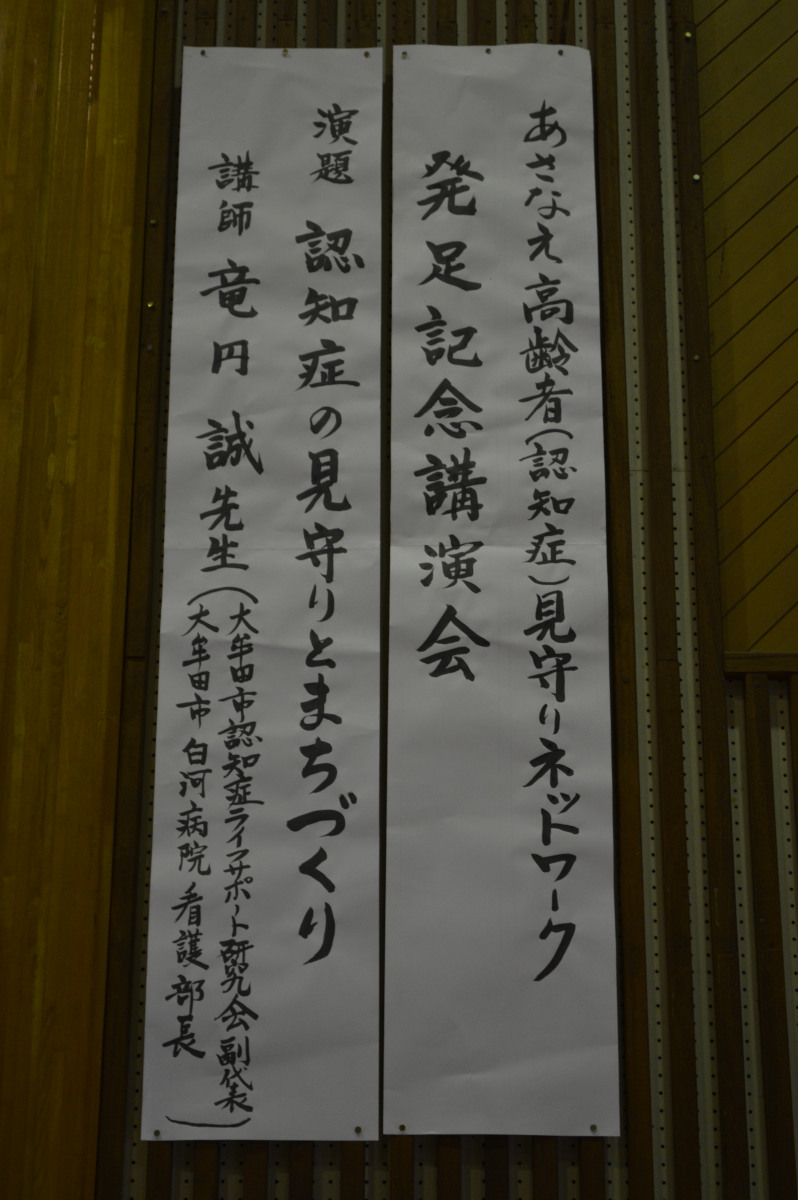 あさなえ高齢者(認知症)見守りネットワーク
発足記念講演会
演題 認知症の見守りとまちづくり
講師 竜円 誠先生(大牟田市認知症ライフサポート研究会副代表
大牟田市 白河病院 看護部長)